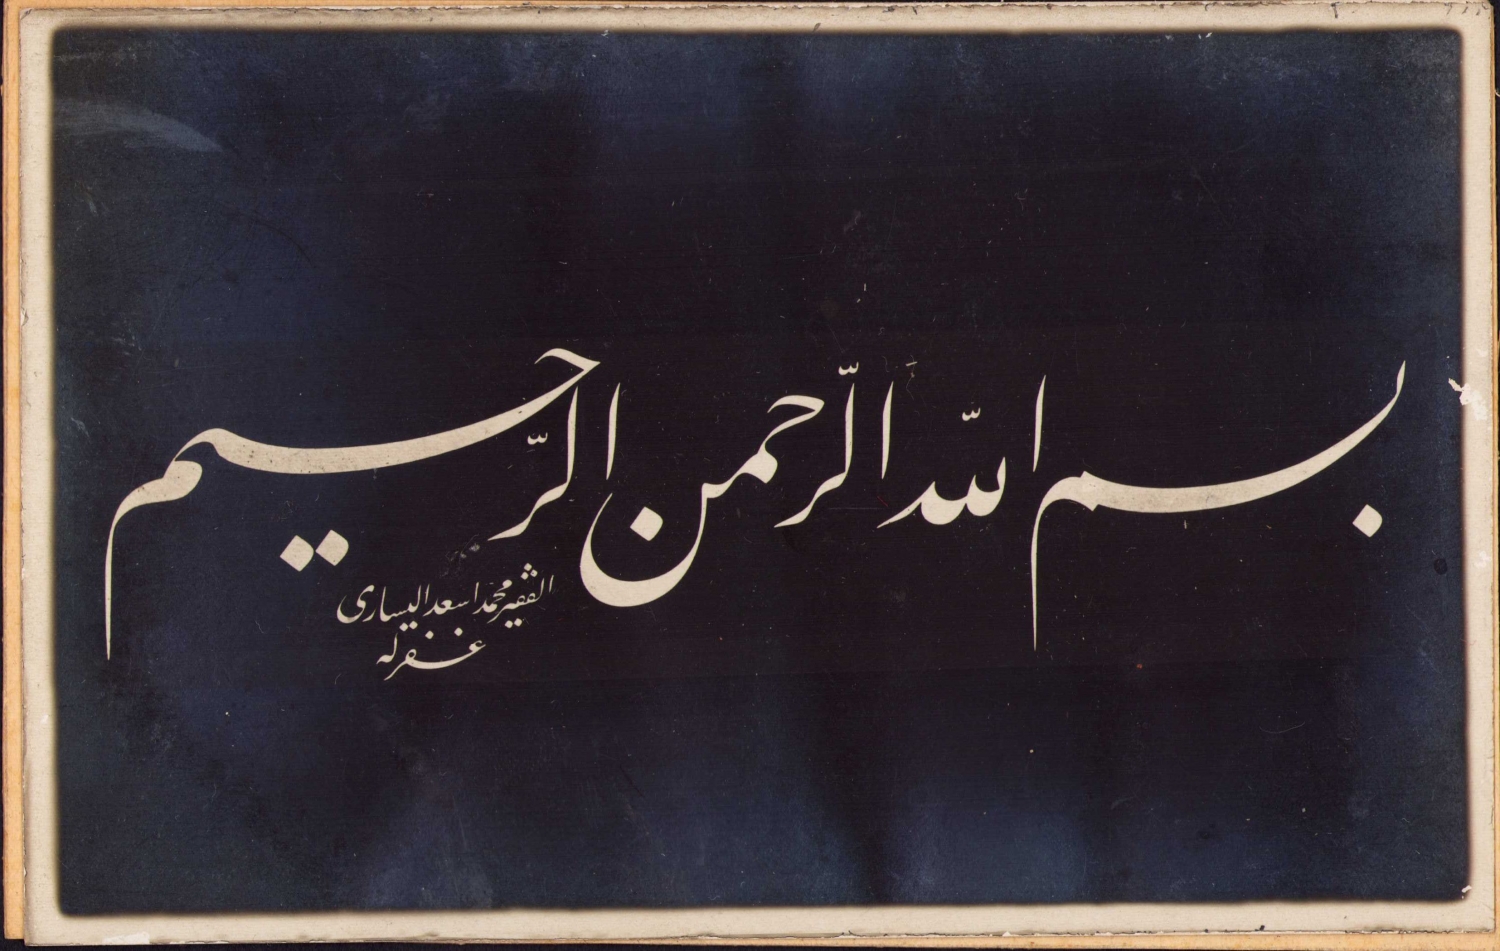 بسم الله الرحمن الرحيم
الفقير محمد اسعد اليسارى
غفر له